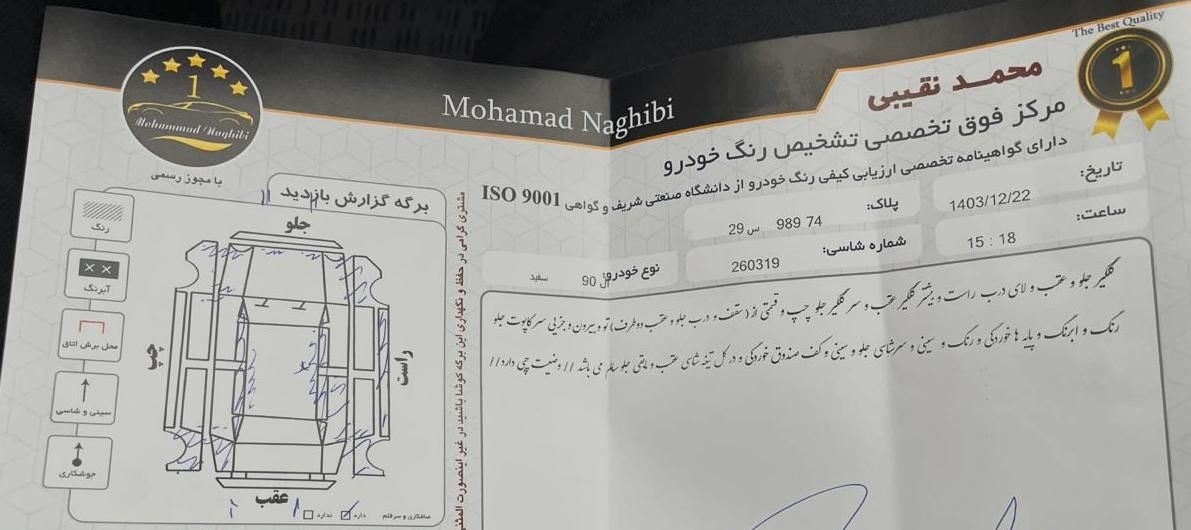 The Best Quality
1
محمـد نقیبی
Mohamad Naghibi
1
Mohammad Naghibi
با مجوز رسمی
مرکز فوق تخصصی تشخیص رنگ خودرو
دارای گواهینامه تخصصی ارزیابی کیفی رنگ خودرو از دانشگاه صنعتی شریف و گواهی ISO 9001
تاریخ: 1403/12/22
پلاک: 74 989 س 29
ساعت: 15 : 18
شماره شاسی: 260319
نوع خودرو: ال 90 سفید
گلگیر جلو و عقب و لای درب راست و بیشتر گلگیر عقب و سر گلگیر جلو چپ و قسمتی از (سقف و درب جلو و عقب دوطرف) تو و بیرون و جزیی سر کاپوت جلو
رنگ و ابرنگ و پایه ها خوردگی و رنگ و سینی و سرشاسی جلو و سینی و کف صندوق خوردگی و در کل تیغه شاسی عقب و مابقی جلو سالم می باشد // وضعیت چی دارد //
برگه گزارش بازدید
جلو
چپ
راست
عقب
رنگ
آبرنگ
محل برش اتاق
سینی و شاسی
جوشکاری
صافکاری و سرقلم دارد ندارد
مشتری گرامی در حفظ و نگهداری این برگه کوشا باشید در غیر اینصورت